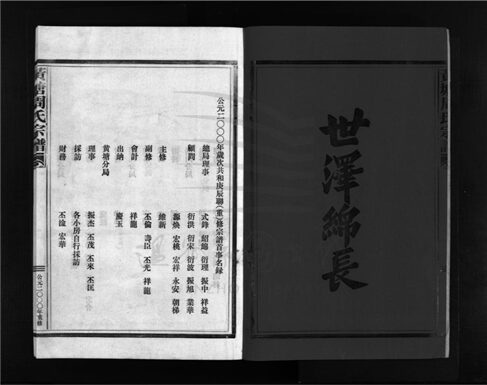 世澤綿長
公元二〇〇〇年歲次共和庚辰聯(重)修宗譜首事名錄
總局理事 式鋒 紹綿 衍理 振中 祥益
衍洪 衍宋 衍波 振旭 業華
顧問 濟煥 宏桃 宏祥 永安 朝梯
主修 維新
副修 丕倫 壽臣 丕光 祥龍
會計 祥龍
出納 慶玉
黃塘分局
理事 振杰 丕茂 丕來 丕匡
採訪 各小房自行採訪
財務 丕淦 宏華
黃塘周氏宗譜
公元二〇〇〇年重修